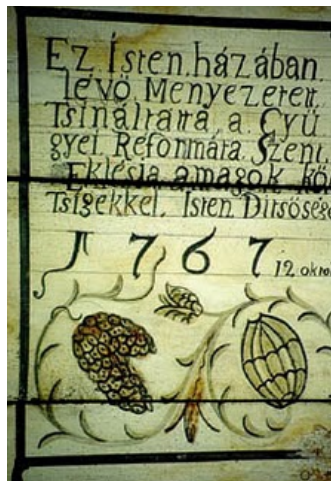 Ez Isten.házában.
lévö Menyezetett
Tsináltatta, a. Gyü
gyei, Reformáta. Szent.
Eklésia amagok köl
Tsigekkel. Isten. Ditsöség
1767 12 okto